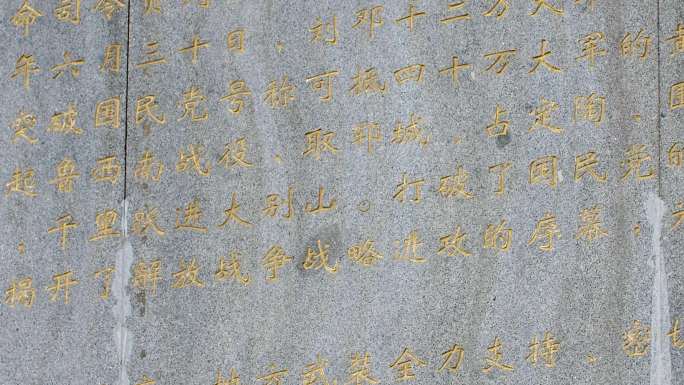 命司令员
年六月三十日，刘邓十二万大军
突破国民党号称可抵四十万大军的黄
起鲁西南战役，取郓城，占定陶，围
，千里跃进大别山。打破了国民党的
揭开了解放战争战略进攻的序幕，为
地方武装全力支持、密切